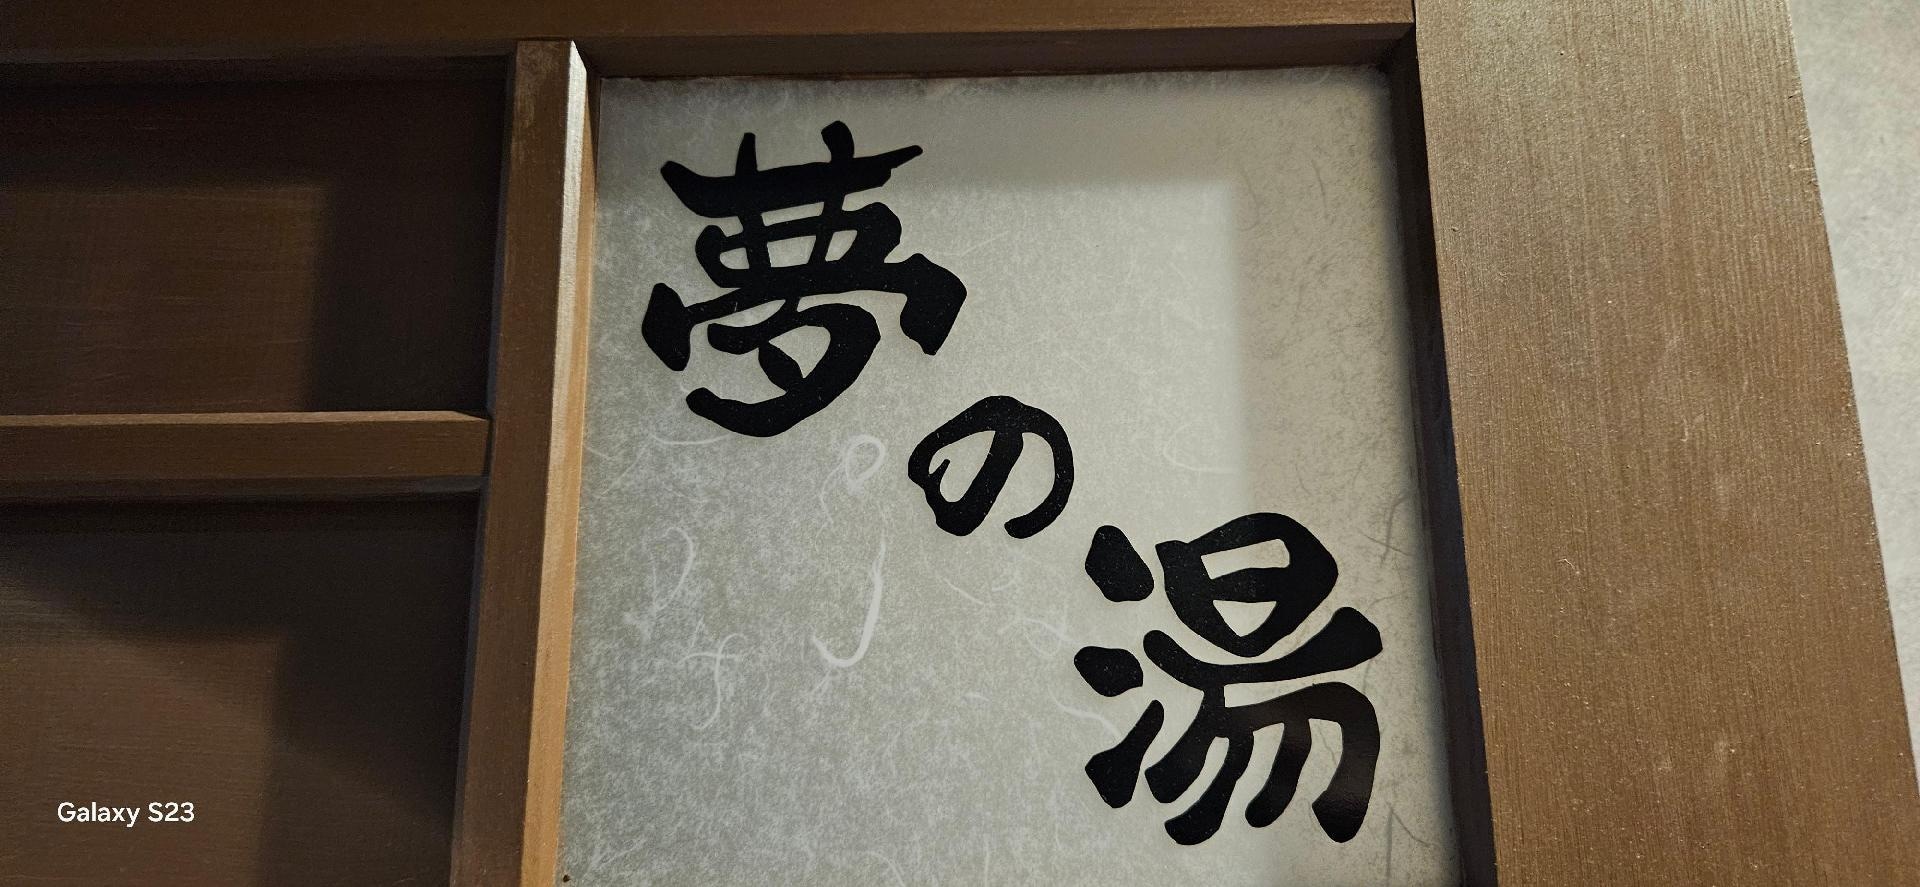 夢の湯
Galaxy S23